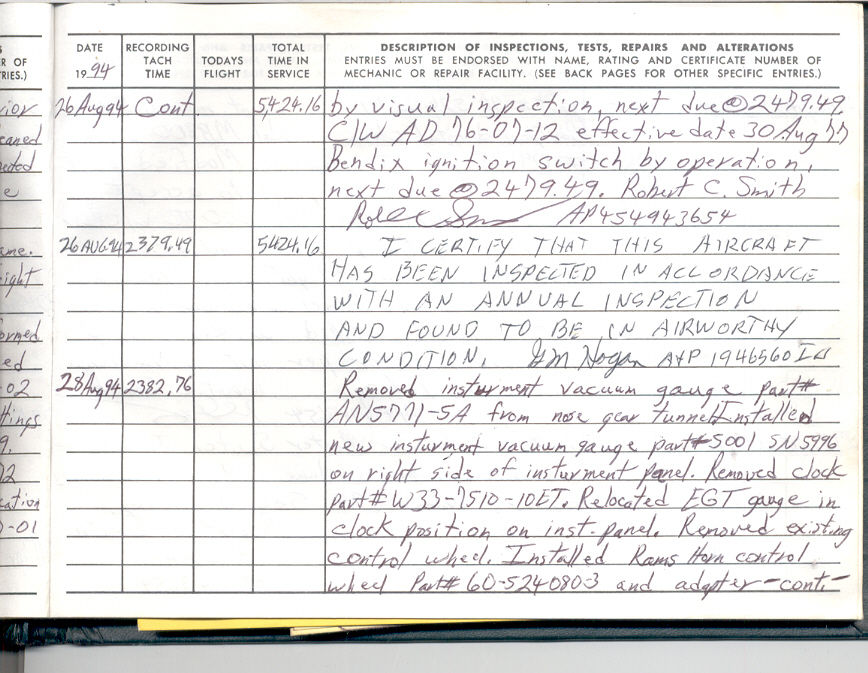 S
R OF
RIES.)
DATE
19 94
RECORDING
TACH
TIME
TODAYS
FLIGHT
TOTAL
TIME IN
SERVICE
DESCRIPTION OF INSPECTIONS, TESTS, REPAIRS AND ALTERATIONS
ENTRIES MUST BE ENDORSED WITH NAME, RATING AND CERTIFICATE NUMBER OF
MECHANIC OR REPAIR FACILITY. (SEE BACK PAGES FOR OTHER SPECIFIC ENTRIES.)
26 Aug 94 Cont. 5,424.16 by visual inspection, next due @ 2479.49.
C/W AD 76-07-12 effective date 30 Aug 77
Bendix ignition switch by operation,
next due @ 2479.49. Robert C. Smith
AP454943654
26 AUG 94 2379.49 5424.16 I CERTIFY THAT THIS AIRCRAFT
HAS BEEN INSPECTED IN ACCORDANCE
WITH AN ANNUAL INSPECTION
AND FOUND TO BE IN AIRWORTHY
CONDITION. GM Hogan A+P 1946560 IA
28 Aug 94 2382.76 Removed insturment vacuum gauge part#
AN5771-5A from nose gear tunnel. Installed
new insturment vacuum gauge part# 5001 SN5996
on right side of insturment panel. Removed clock
part# W33-7510-10ET. Relocated EGT gauge in
clock position on inst. panel. Removed existing
control wheel. Installed Rams Horn control
wheel Part# 60-524080-3 and adapter -cont.-